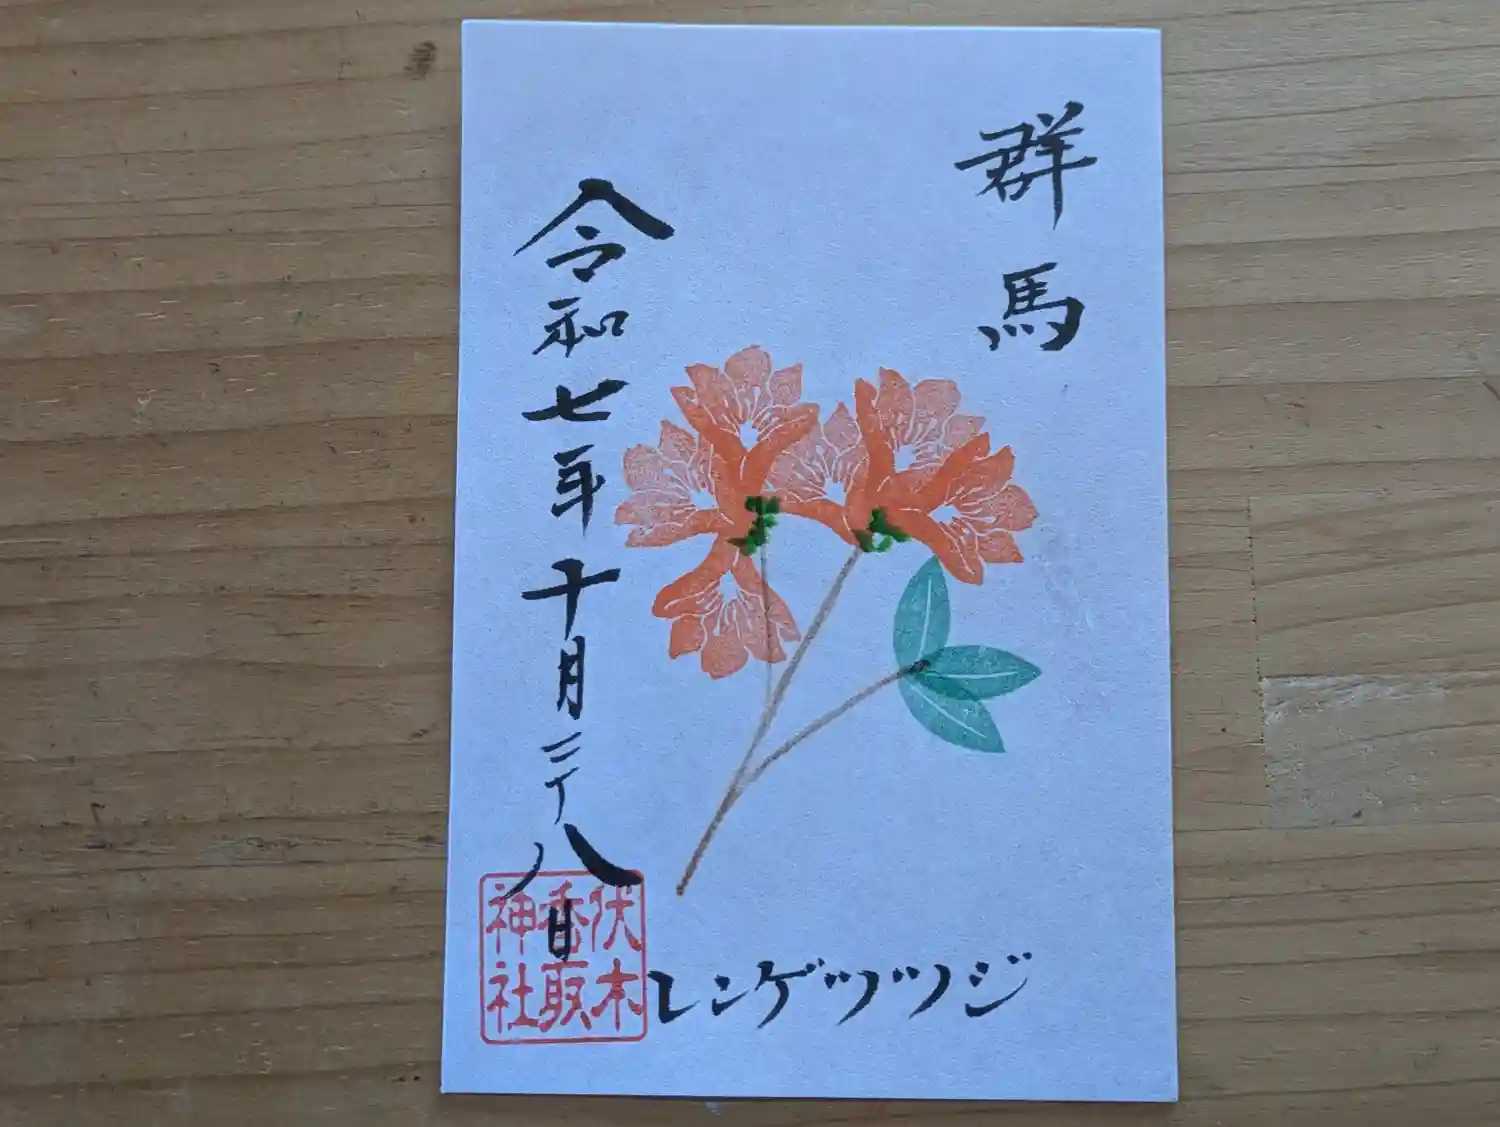 群馬
レンゲツツジ
令和七年十月二十八日
伏木
香取
神社